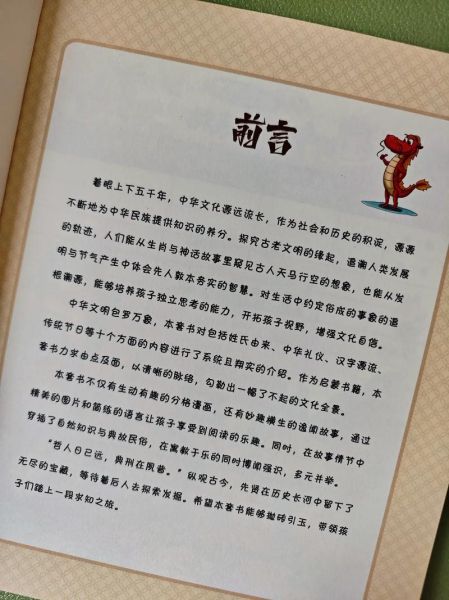 前言
着眼上下五千年，中华文化源远流长，作为社会和历史的积淀，源源
不断地为中华民族提供知识的养分。探究古老文明的缘起，追溯人类发展
的轨迹，人们能从生肖与神话故事里窥见古人天马行空的想象，也能从发
明与节气产生中体会先人敦本务实的智慧。对生活中约定俗成的事象的追
根溯源，能够培养孩子独立思考的能力，开拓孩子视野，增强文化自信。
中华文明包罗万象，本套书对包括姓氏由来、中华礼仪、汉字源流、
传统节日等十个方面的内容进行了系统且翔实的介绍。作为启蒙书籍，本
套书力求由点及面，以清晰的脉络，勾勒出一幅了不起的文化全景。
本套书不仅有生动有趣的分格漫画，还有妙趣横生的逸闻故事，通过
精美的图片和简练的语言让孩子享受到阅读的乐趣。同时，在故事情节中
穿插了自然知识与典故民俗，在寓教于乐的同时博闻强识，多元并举。
“哲人日已远，典刑在夙昔。”纵观古今，先贤在历史长河中留下了
无尽的宝藏，等待着后人去探索发掘。希望本套书能够抛砖引玉，带领孩
子们踏上一段求知之旅。